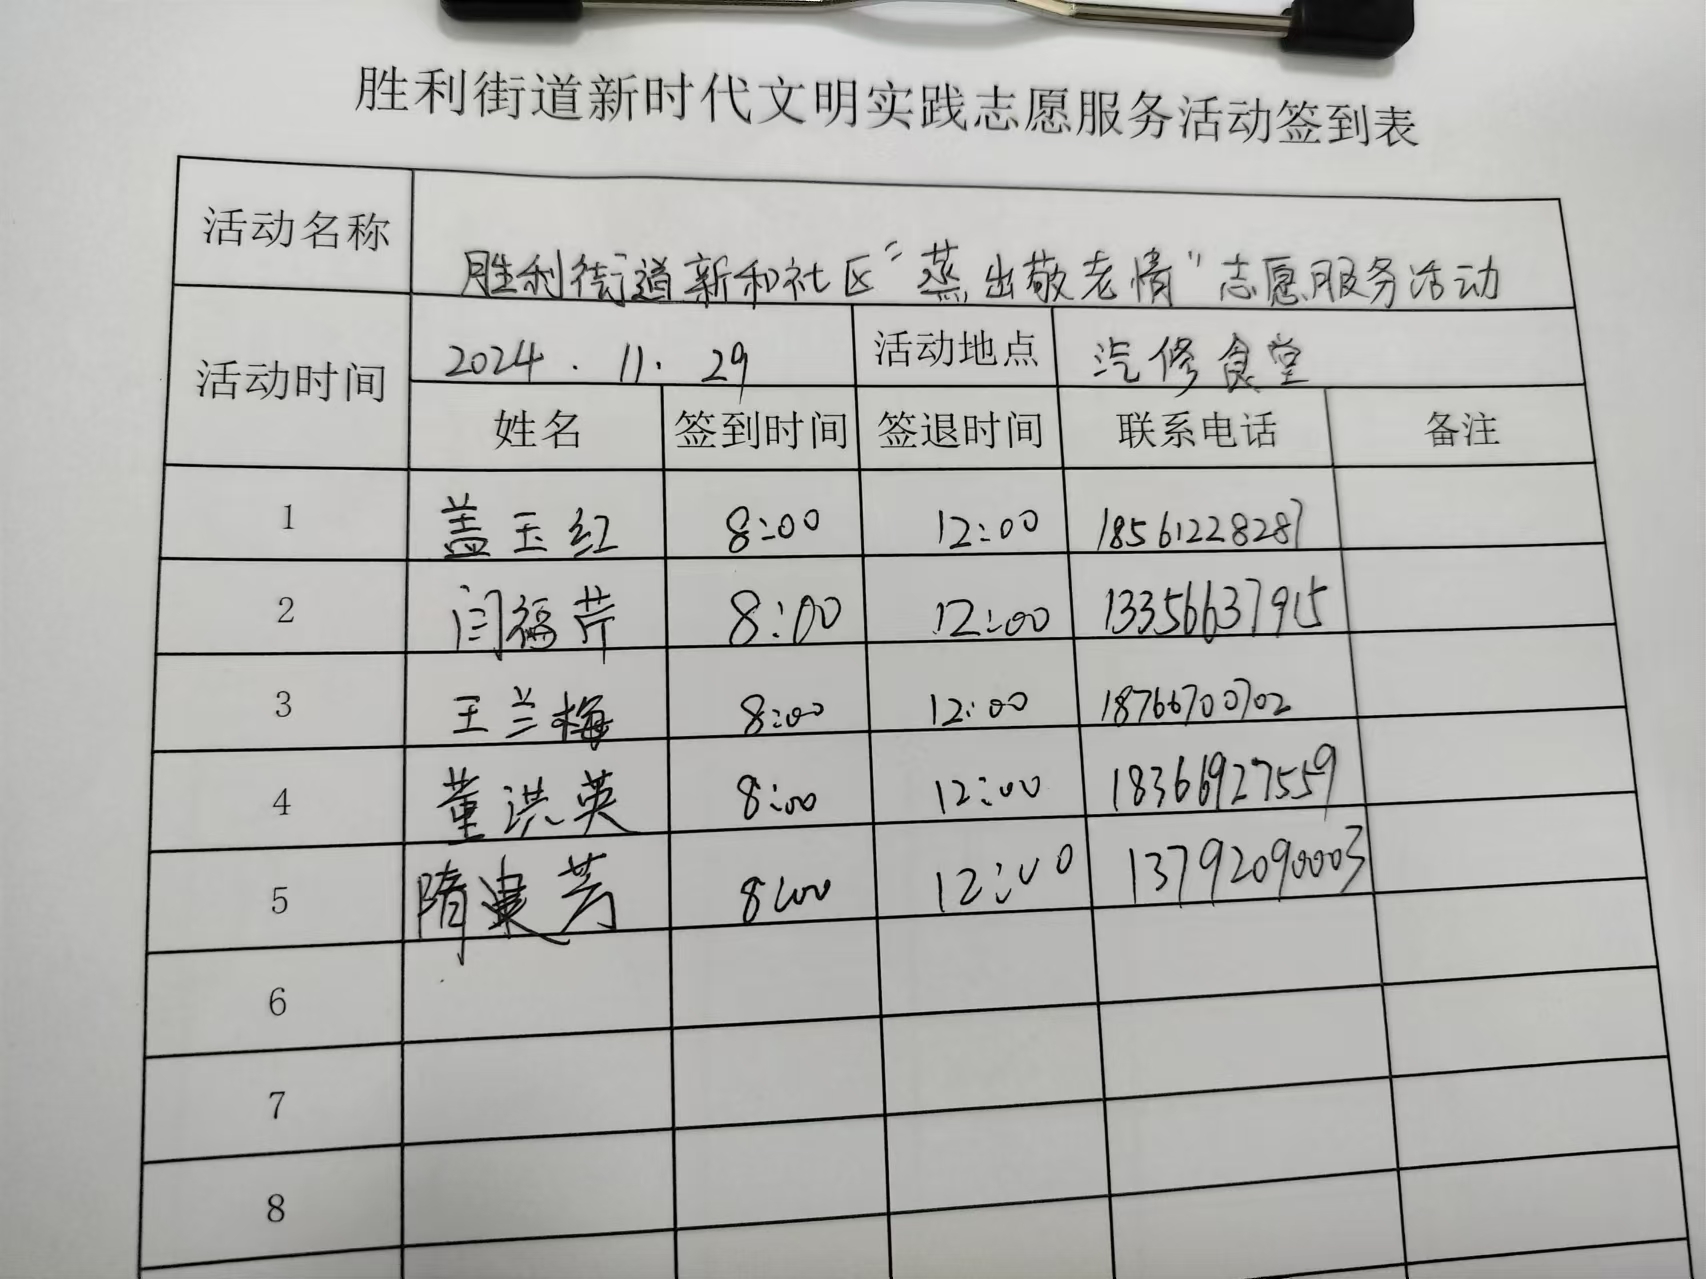 胜利街道新时代文明实践志愿服务活动签到表
活动名称 胜利街道新和社区“蒸出敬老情”志愿服务活动
活动时间 2024.11.29 活动地点 汽修食堂
姓名 签到时间 签退时间 联系电话 备注
1 盖玉红 8:00 12:00 18561228287
2 闫福芹 8:00 12:00 13356637915
3 王兰梅 8:00 12:00 18766700702
4 董洪英 8:00 12:00 18366927559
5 隋建芳 8:00 12:00 13792090003
6
7
8